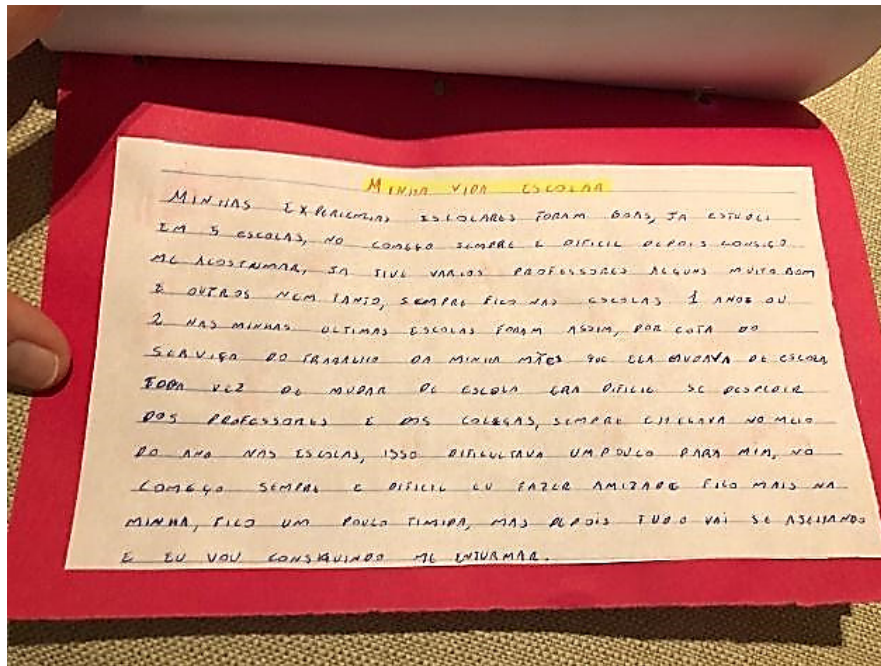 MINHA VIDA ESCOLAR
MINHAS EXPERIENCIAS ESCOLARES FORAM BOAS, JA ESTUDEI
EM 5 ESCOLAS, NO COMEÇO SEMPRE E DIFICIL DEPOIS CONSIGO
ME ACOSTRUMAR, JA TIVE VARIOS PROFESSORES ALGUNS MUITO BOM
E OUTROS NEM TANTO, SEMPRE FICO NAS ESCOLAS 1 ANOS OU
2 NAS MINHAS ULTIMAS ESCOLAS FORAM ASSIM, POR COTA DO
SERVIÇO DO TRABALHO DA MINHA MÃES QUE ELA MUDAVA DE ESCOLA
TODA VEZ DE MUDAR DE ESCOLA ERA DIFICIL SE DESPEDIR
DOS PROFESSORES E DOS COLEGAS, SEMPRE CHEGAVA NO MEIO
DO ANO NAS ESCOLAS, ISSO DIFICULTAVA UM POUCO PARA MIM, NO
COMEÇO SEMPRE E DIFICIL EU FAZER AMIZADE FICO MAIS NA
MINHA, FICO UM POUCO TIMIDA, MAS DEPOIS TUDO VAI SE AJEITANDO
E EU VOU CONSIGUINDO ME ENTURMAR.